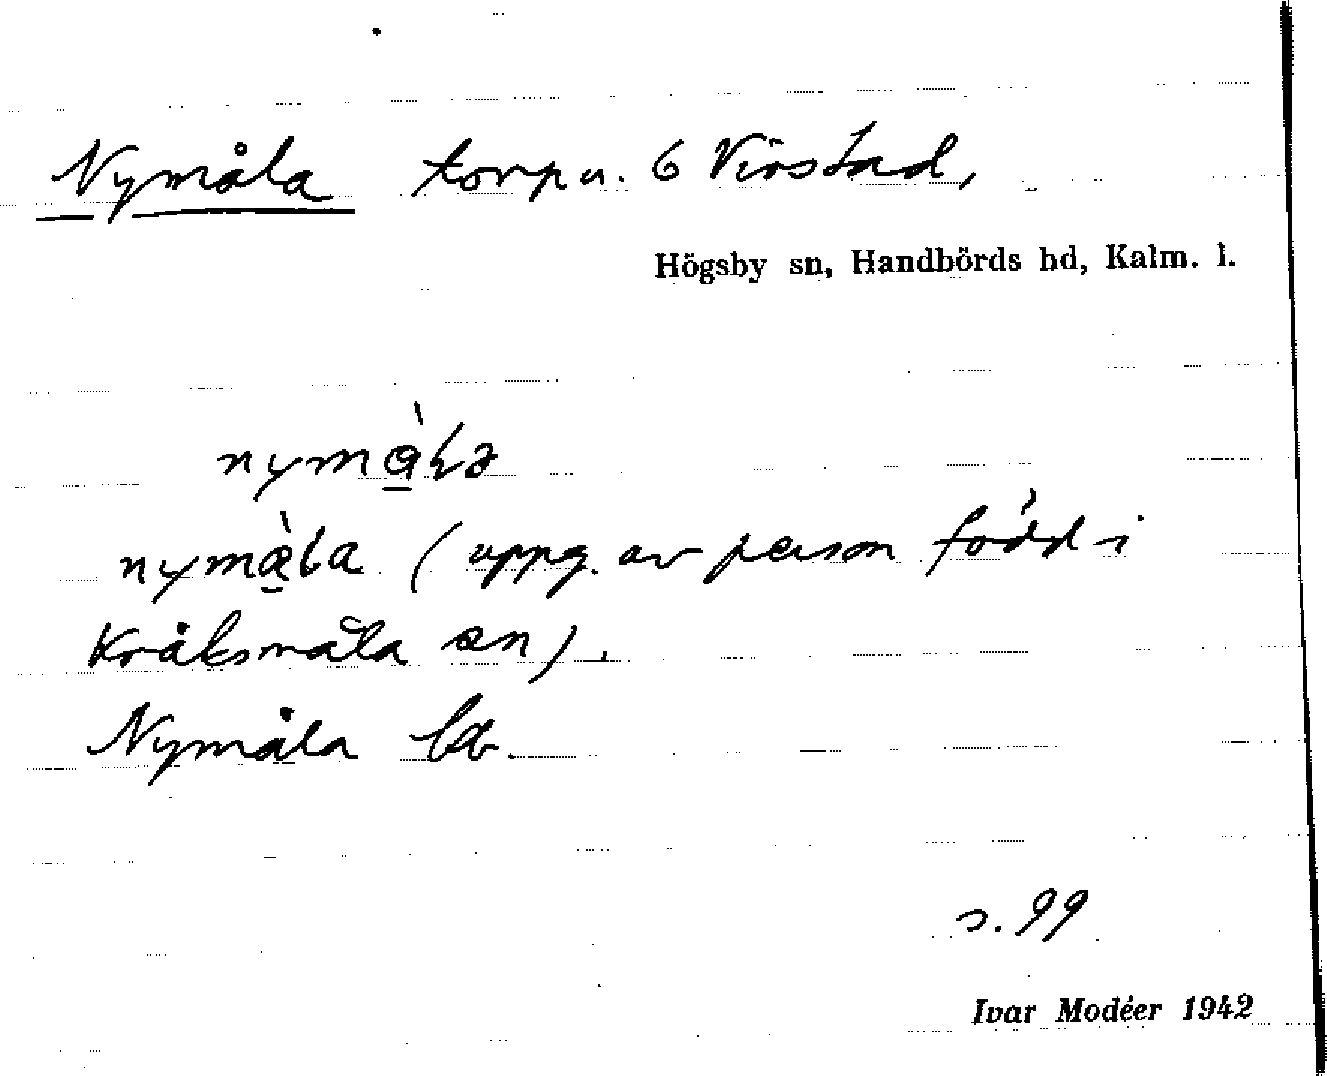 Nymåla torp u. 6 Virstad,
Högsby sn, Handbörds hd, Kalm. l.
(uppg. av person född i
Kråksmåla sn).
Nymåla
s. 99
Ivar Modéer 1942